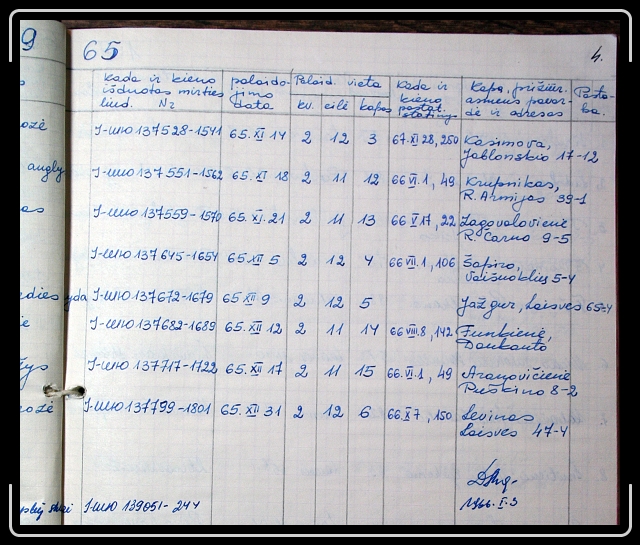 9
65
4.
kada ir kieno išduotas mirties liud. Nr
palaidojimo data
Palaid. vieta
kv. eilė kapas
kada ir kieno pastat.
Kapą prižiūr. asmens pavardė ir adresas
Pastaba.
ozė I-ШЮ 137528-1541 65.XI 14 2 12 3 67.XI 28, 250 Kasimova,
Jablonskio 17-12
angly I-ШЮ 137551-1562 65.XI 18 2 11 12 66 VII.1, 49 Krupnikas,
R. Armijos 39-1
as I-ШЮ 137559-1570 65.XI.21 2 11 13 66 V 17, 22 Zagovalovienė
R. Čarno 9-5
I-ШЮ 137645-1654 65.XII 5 2 12 4 66 VII.1, 106 Šapiro,
Vaižnoblių 5-4
I-ШЮ 137672-1679 65 XII 9 2 12 5 Jažgur, Laisves 65-4
ie I-ШЮ 137682-1689 65.XII 12 2 11 14 66 VIII.8, 142 Funkienė,
Daukanto
žys I-ШЮ 137717-1722 65.XII 17 2 11 15 66.VI.1, 49 Aronovičienė
Puškino 8-2
ozė I-ШЮ 137799-1801 65.XII 31 2 12 6 66 X 7, 150 Levinas
Laisves 47-4
I-ШЮ 139051-244 1966.I.3